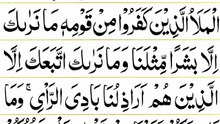 الْمَلَاُ الَّذِيْنَ كَفَرُوْا مِنْ قَوْمِهٖ مَا نَرٰىكَ
اِلَّا بَشَرًا مِّثْلَنَا وَمَا نَرٰىكَ اتَّبَعَكَ اِلَّا
الَّذِيْنَ هُمْ اَرَاذِلُنَا بَادِىَ الرَّاْىِ ۚ وَمَا